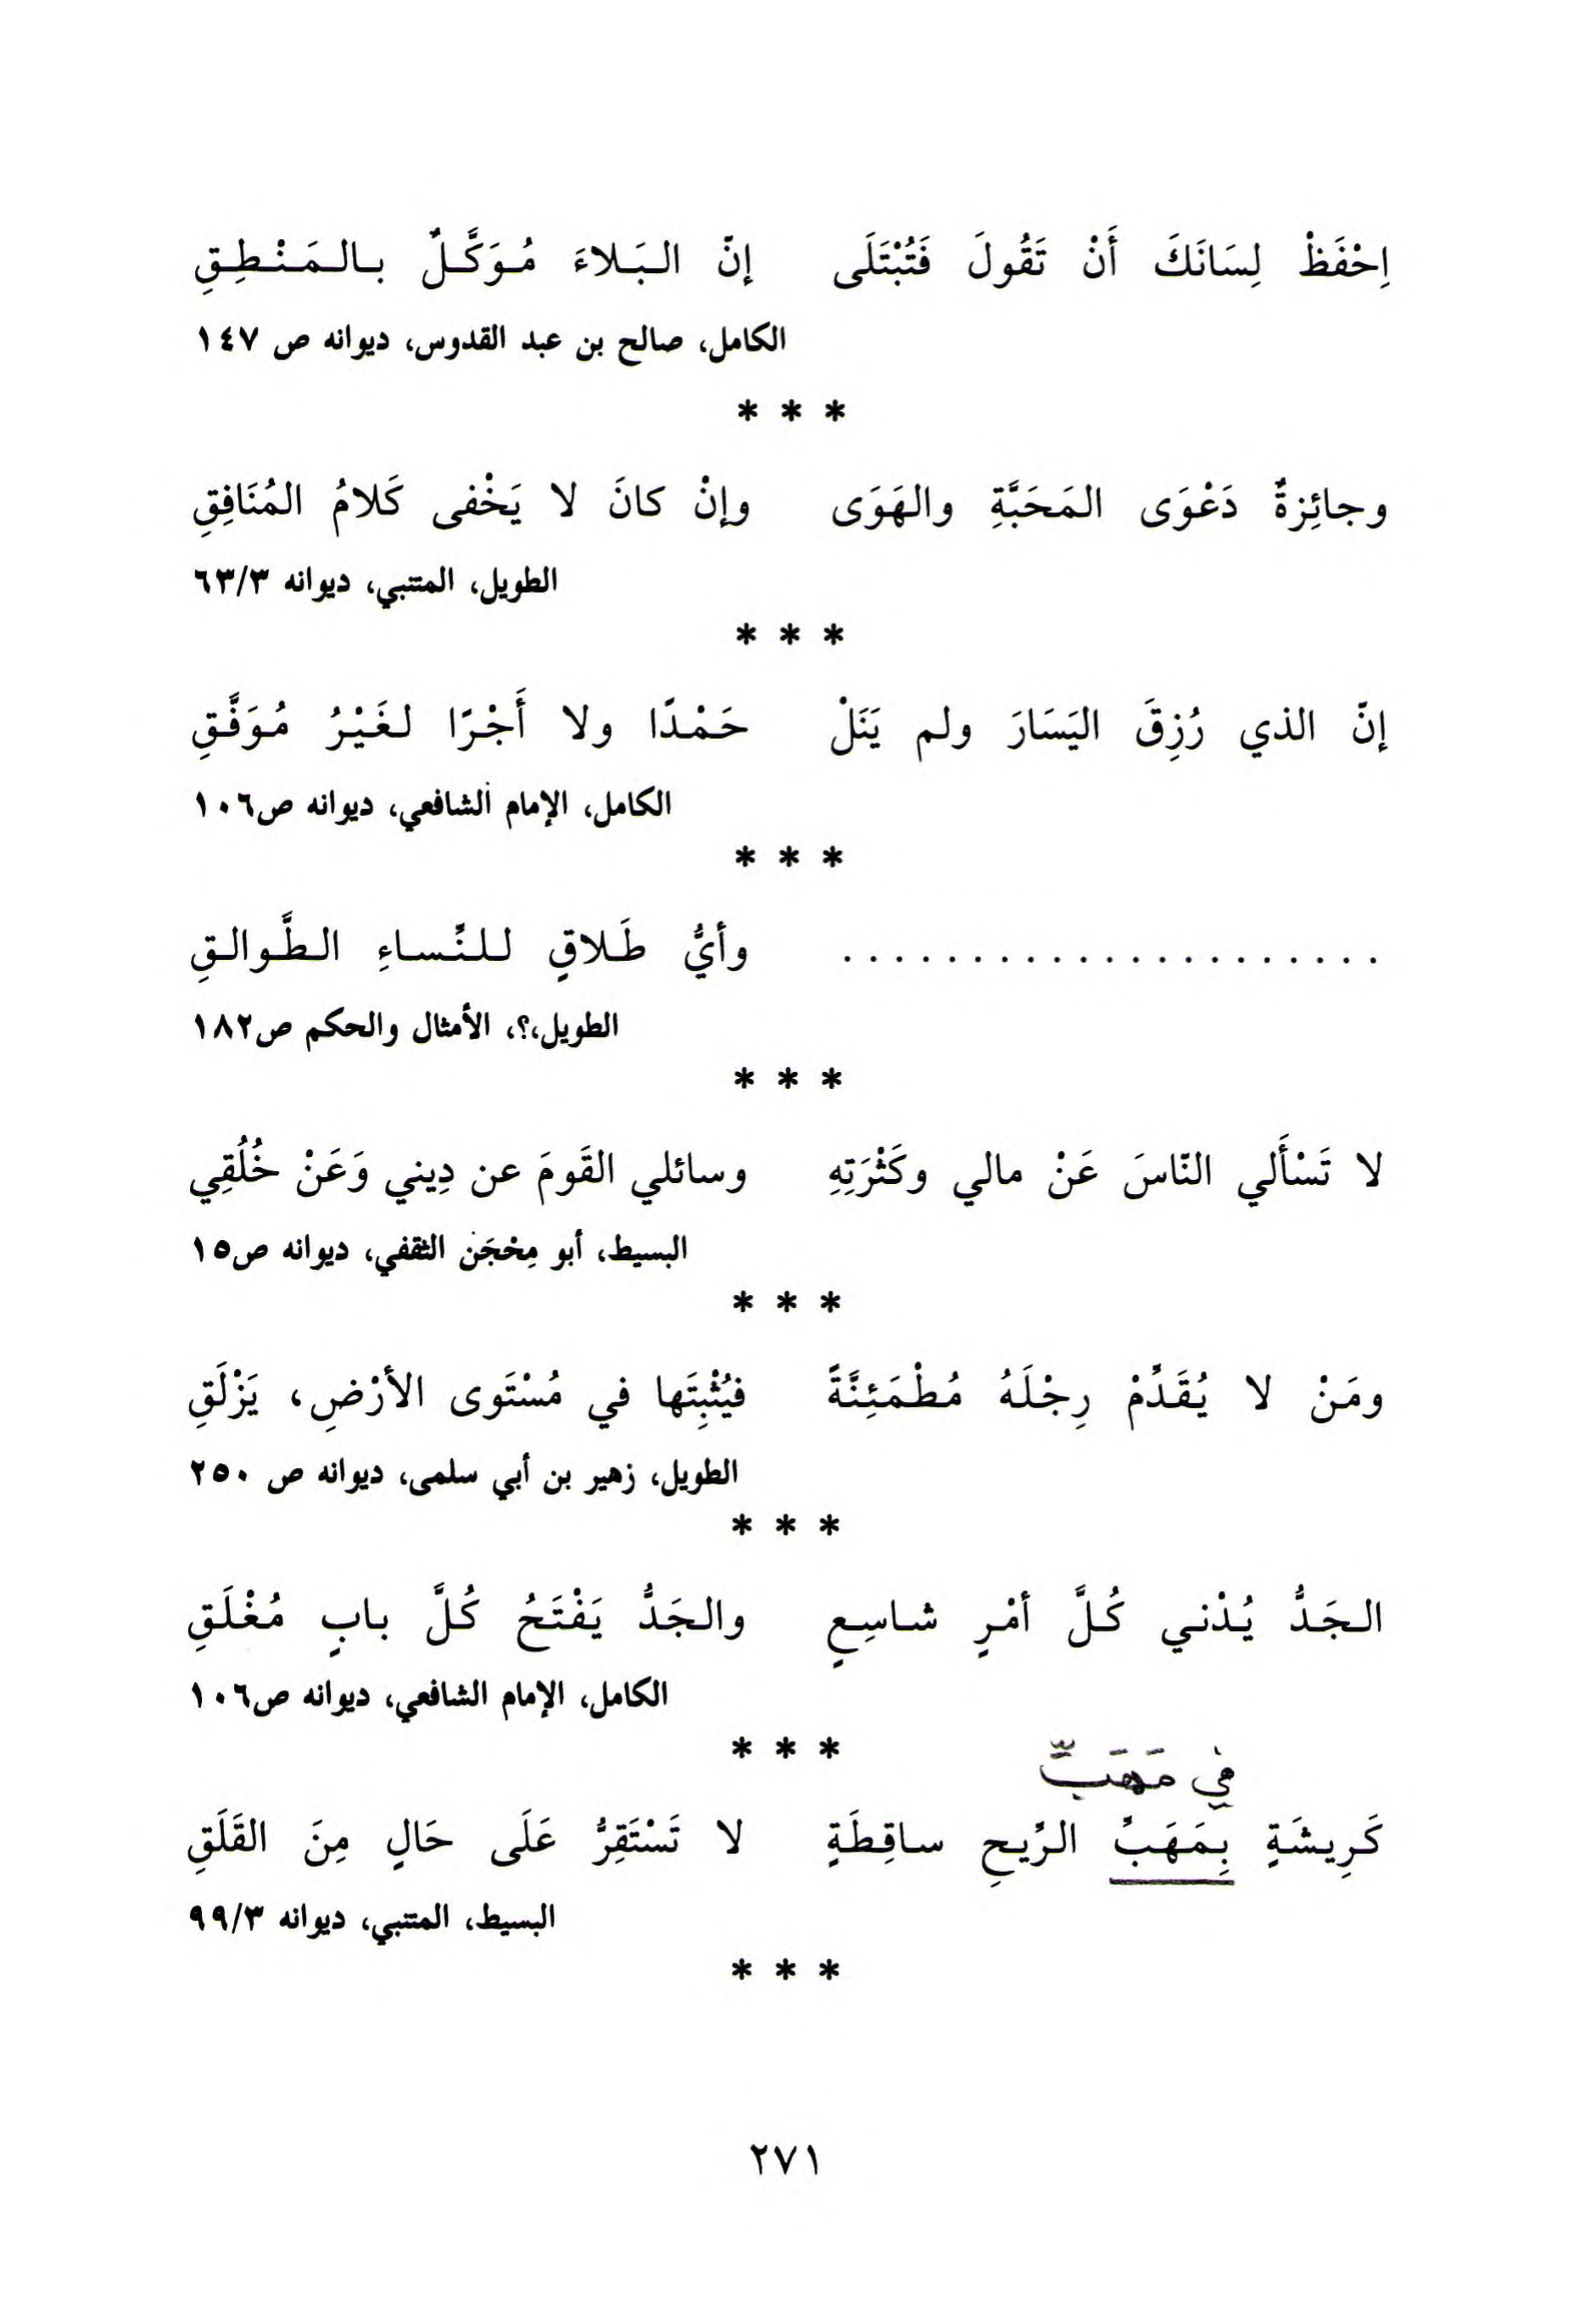 اِحْفَظْ لِسَانَكَ أَنْ تَقُولَ فَتُبْتَلَى إنّ البَلاءَ مُوَكَّلٌ بالمَنْطِقِ
الكامل، صالح بن عبد القدوس، ديوانه ص ١٤٧
* * *
وجائِزةٌ دَعْوَى المَحَبَّةِ والهَوَى وإنْ كانَ لا يَخْفى كَلامُ المُنَافِقِ
الطويل، المتنبي، ديوانه ٦٣/٣
* * *
إنّ الذي رُزِقَ اليَسَارَ ولم يَنَلْ حَمْدًا ولا أَجْرًا لغَيْرُ مُوَفَّقِ
الكامل، الإمام الشافعي، ديوانه ص١٠٦
* * *
. . . . . . . . . . . . . . . . . . . . . وأيُّ طَلاقٍ للنِّساءِ الطَّوالقِ
الطويل،؟، الأمثال والحكم ص١٨٢
* * *
لا تَسْأَلي النّاسَ عَنْ مالي وكَثْرَتِهِ وسائلي القَومَ عن دِيني وَعَنْ خُلُقِي
البسيط، أبو مِحْجَن الثقفي، ديوانه ص١٥
* * *
ومَنْ لا يُقَدِّمْ رِجْلَهُ مُطْمَئِنَّةً فيُثْبِتَها في مُسْتَوى الأرْضِ، يَزْلَقِ
الطويل، زهير بن أبي سلمى، ديوانه ص ٢٥٠
* * *
الجَدُّ يُدْني كُلَّ أمْرٍ شاسِعٍ والجَدُّ يَفْتَحُ كُلَّ بابٍ مُغْلَقِ
الكامل، الإمام الشافعي، ديوانه ص١٠٦
* * *
في مَهَبِّ
كَرِيشَةٍ بِمَهَبِّ الرِّيحِ ساقِطَةٍ لا تَسْتَقِرُّ عَلَى حَالٍ مِنَ القَلَقِ
البسيط، المتنبي، ديوانه ٩٩/٣
* * *
٢٧١